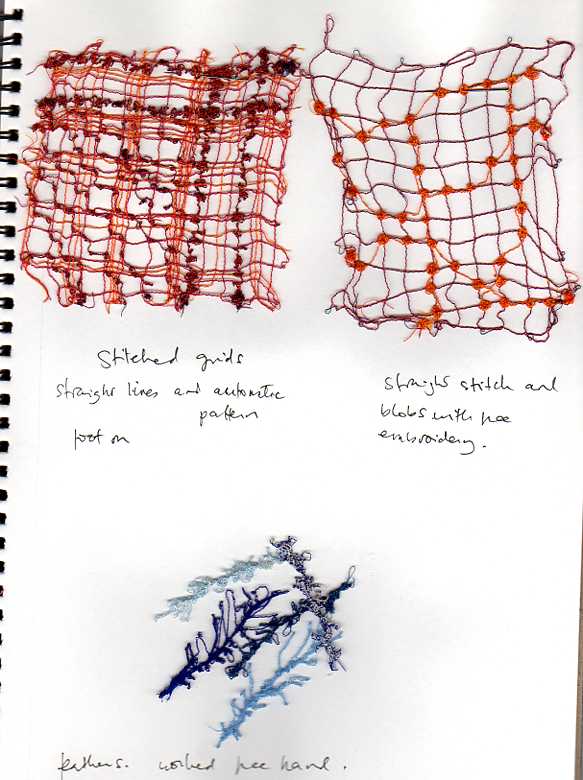 Stitched grids
straight lines and automatic
pattern
foot on
straight stitch and
blobs with free
embroidery.
feathers. worked free hand.